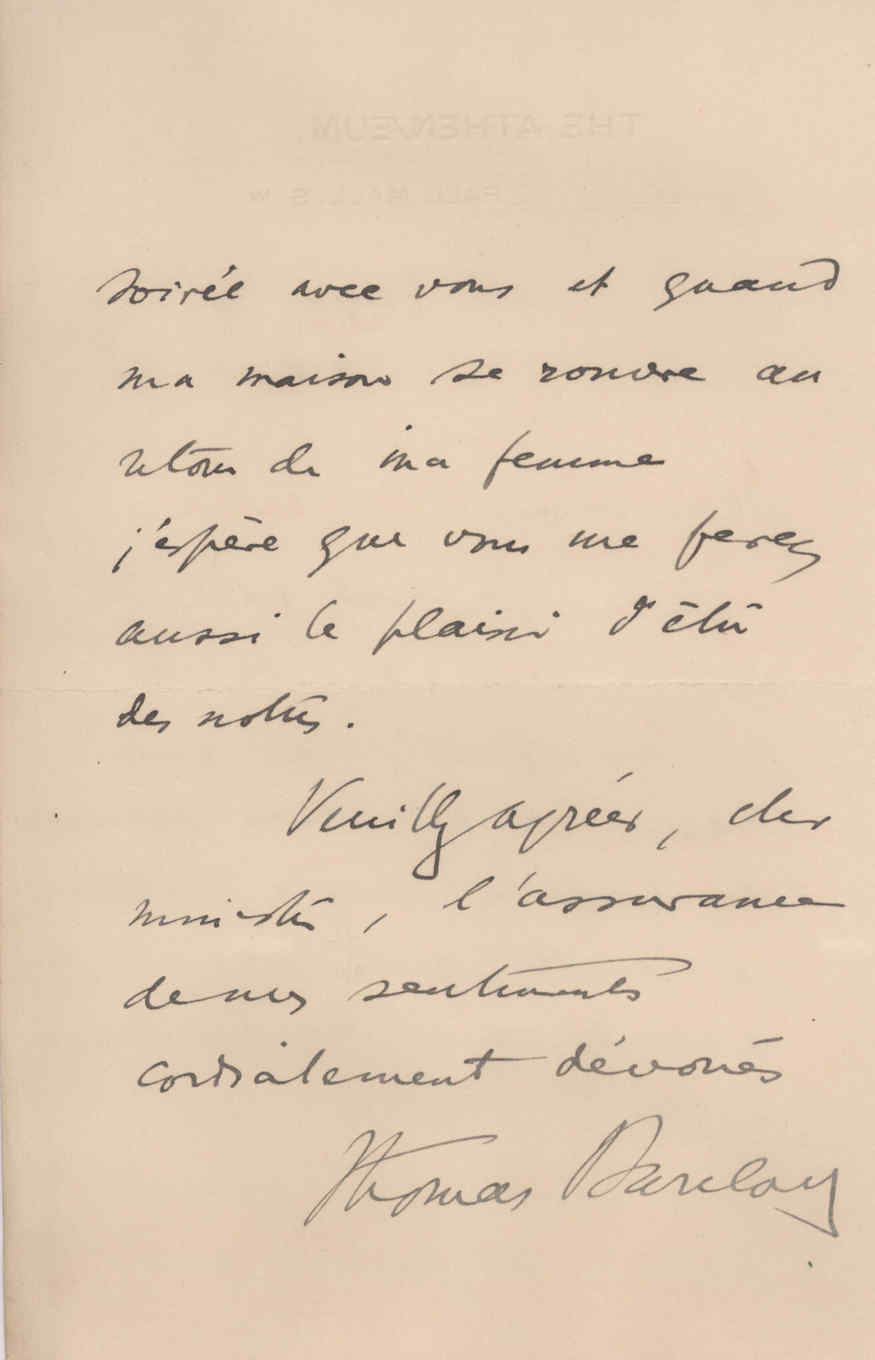 THE ATHENÆUM,
PALL MALL. S.W
soirée avec vous et quand
ma maison se rouvre au
retour de ma femme
j'espère que vous me ferez
aussi le plaisir d'être
des nôtres.
Veuillez agréer, cher
ministre, l'assurance
de mes sentiments
cordialement dévoués
Thomas Barclay